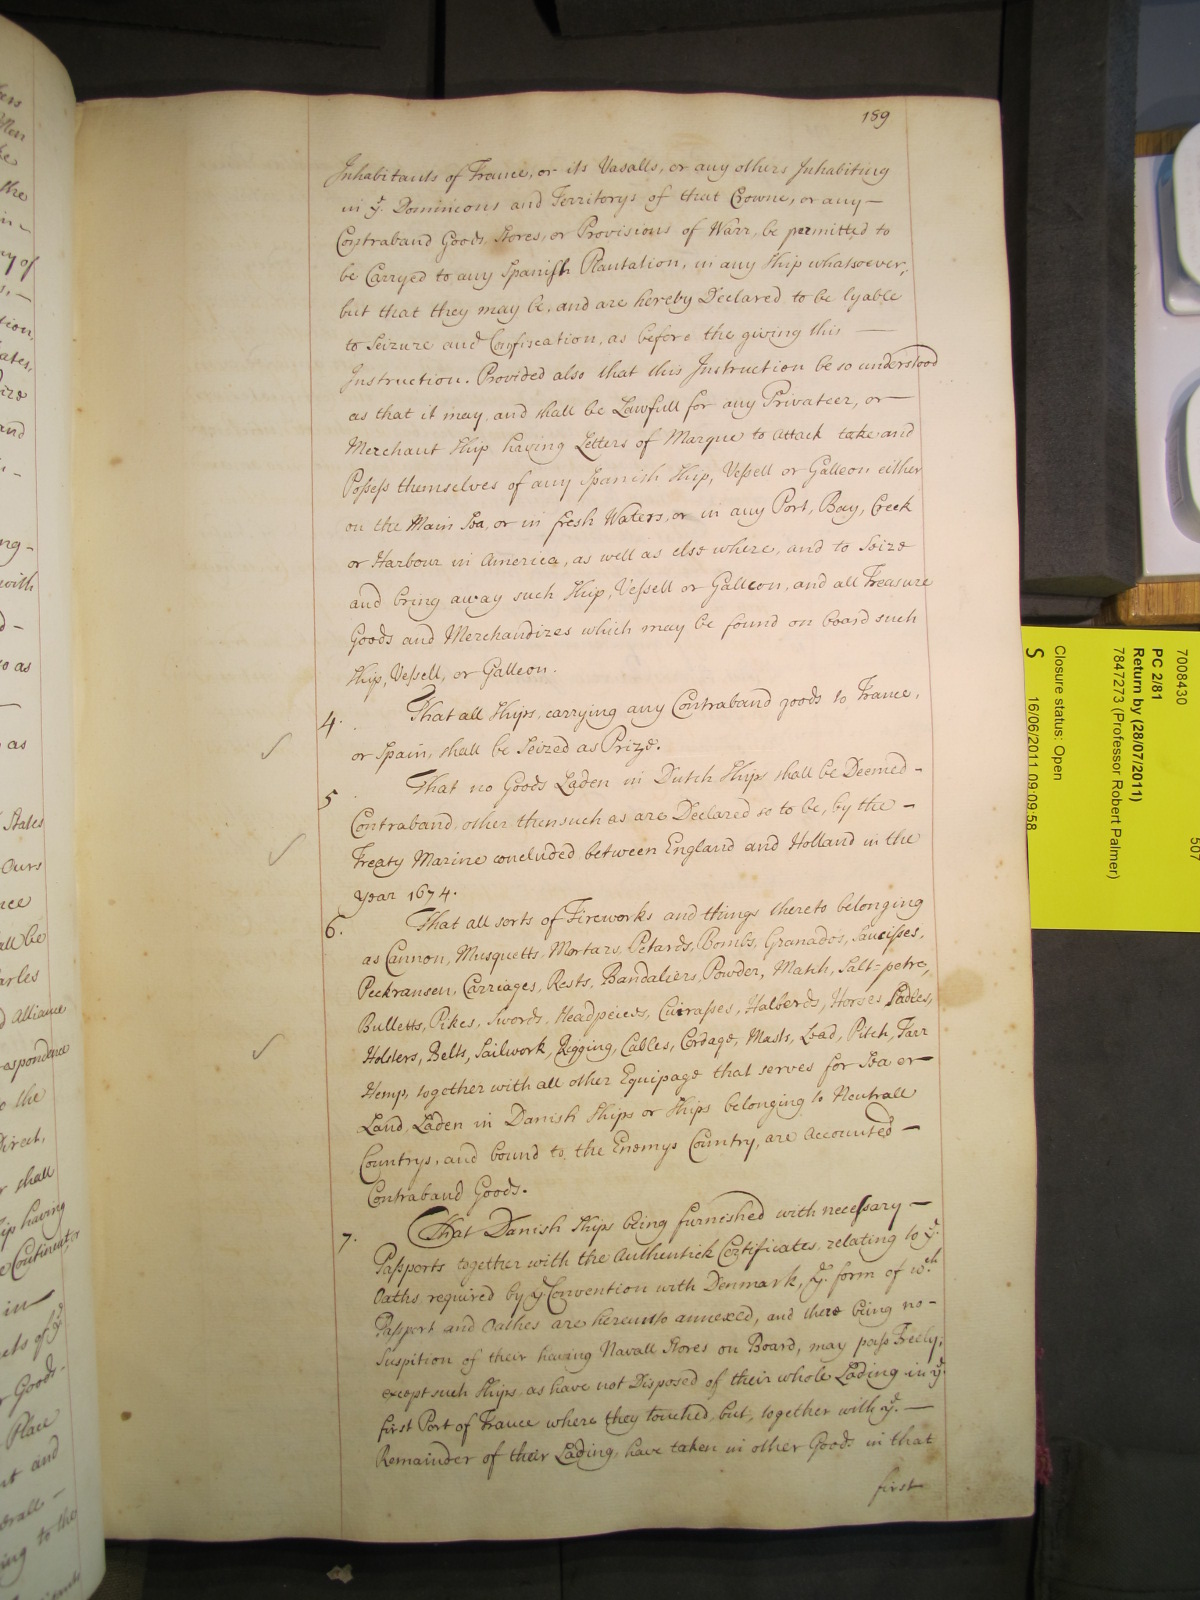 189
Inhabitants of France, or its Vasalls, or any others Inhabiting
in yͤ. Dominions and Territorys of that Crowne, or any —
Contraband Goods, Stores, or Provisions of Warr, be permitted to
be Carryed to any Spanish Plantation, in any Ship whatsoever,
but that they may be, and are hereby Declared to be lyable
to Seizure and Confiscation, as before the giving this —
Instruction. Provided also that this Instruction be so understood
as that it may, and shall be Lawfull for any Privateer, or —
Merchant Ship having Letters of Marque to Attack take and
Possess themselves of any Spanish Ship, Vessell or Galleon either
on the Main Sea, or in fresh Waters, or in any Port, Bay, Creek
or Harbour in America, as well as else where, and to Seize
and bring away such Ship, Vessell or Galleon, and all Treasure
Goods and Merchandizes which may be found on board such
Ship, Vessell, or Galleon.
4. That all Ships, carrying any Contraband goods to France,
or Spain, shall be Seized as Prize.
5 That no Goods Laden in Dutch Ships shall be Deemed -
Contraband, other then such as are Declared so to be, by the —
Treaty Marine concluded between England and Holland in the
year 1674.
6. That all sorts of Fireworks and things thereto belonging
as Cannon, Musquetts, Mortars, Petards, Bombs, Granados, Saucisses,
Peckransen, Carriages, Rests, Bandaliers, Powder, Match, Salt=petre,
Bulletts, Pikes, Swords, Headpeices, Cuirasses, Halberds, Horses, Sadles,
Holsters, Belts, Sailwork, Rigging, Cables, Cordage, Masts, Lead, Pitch, Tarr
Hemp, together with all other Equipage that serves for Sea or —
Land, Laden in Danish Ships or Ships belonging to Neutrall
Countrys, and bound to the Enemys Country, are Accounted —
Contraband Goods.
7. That Danish Ships being furnished with necessary —
Passports together with the Authentick Certificates relating to yͤ.
Oaths required by yͤ Convention with Denmark, yͤ. form of wᶜʰ
Passport and Oathes are hereunto annexed, and there being no -
Suspition of their having Navall Stores on Board, may pass Freely,
except such Ships as have not Disposed of their whole Lading in yͤ.
first Port of France where they touched, but, together with yͤ. —
Remainder of their Lading, have taken in other Goods in that
first
7008430
PC 2/81
Return by (28/07/2011)
7847273 (Professor Robert Palmer)
Closure status: Open
S 16/06/2011 09:09:58
507